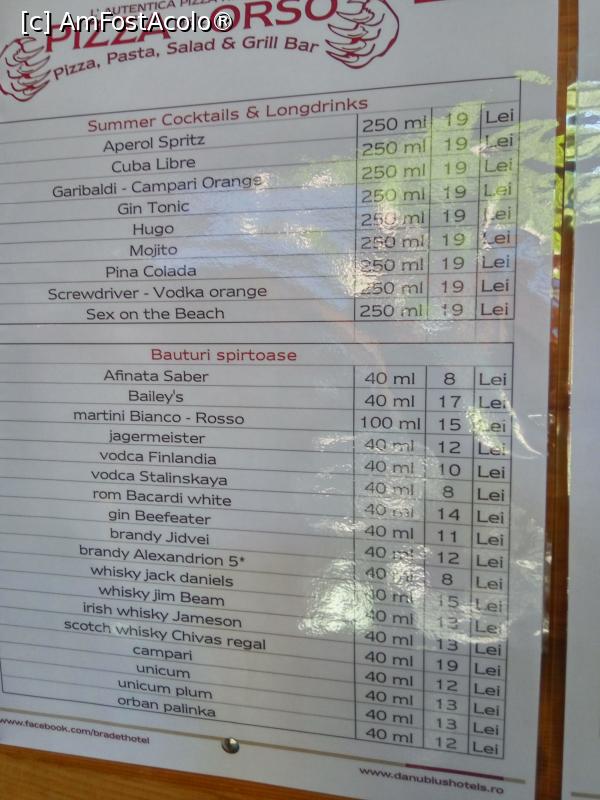 [c] AmFostAcolo®
L' AUTENTICA PIZZA
PIZZA ORSO
Pizza, Pasta, Salad & Grill Bar
Summer Cocktails & Longdrinks
Aperol Spritz 250 ml 19 Lei
Cuba Libre 250 ml 19 Lei
Garibaldi - Campari Orange 250 ml 19 Lei
Gin Tonic 250 ml 19 Lei
Hugo 250 ml 19 Lei
Mojito 250 ml 19 Lei
Pina Colada 250 ml 19 Lei
Screwdriver - Vodka orange 250 ml 19 Lei
Sex on the Beach 250 ml 19 Lei
Bauturi spirtoase
Afinata Saber 40 ml 8 Lei
Bailey's 40 ml 17 Lei
martini Bianco - Rosso 100 ml 15 Lei
jagermeister 40 ml 12 Lei
vodca Finlandia 40 ml 10 Lei
vodca Stalinskaya 40 ml 8 Lei
rom Bacardi white 40 ml 14 Lei
gin Beefeater 40 ml 11 Lei
brandy Jidvei 40 ml 12 Lei
brandy Alexandrion 5* 40 ml 8 Lei
whisky jack daniels 40 ml 15 Lei
whisky jim Beam 40 ml 13 Lei
irish whisky Jameson 40 ml 13 Lei
scotch whisky Chivas regal 40 ml 19 Lei
campari 40 ml 12 Lei
unicum 40 ml 13 Lei
unicum plum 40 ml 13 Lei
orban palinka 40 ml 12 Lei
www.facebook.com/bradethotel
www.danubiushotels.ro